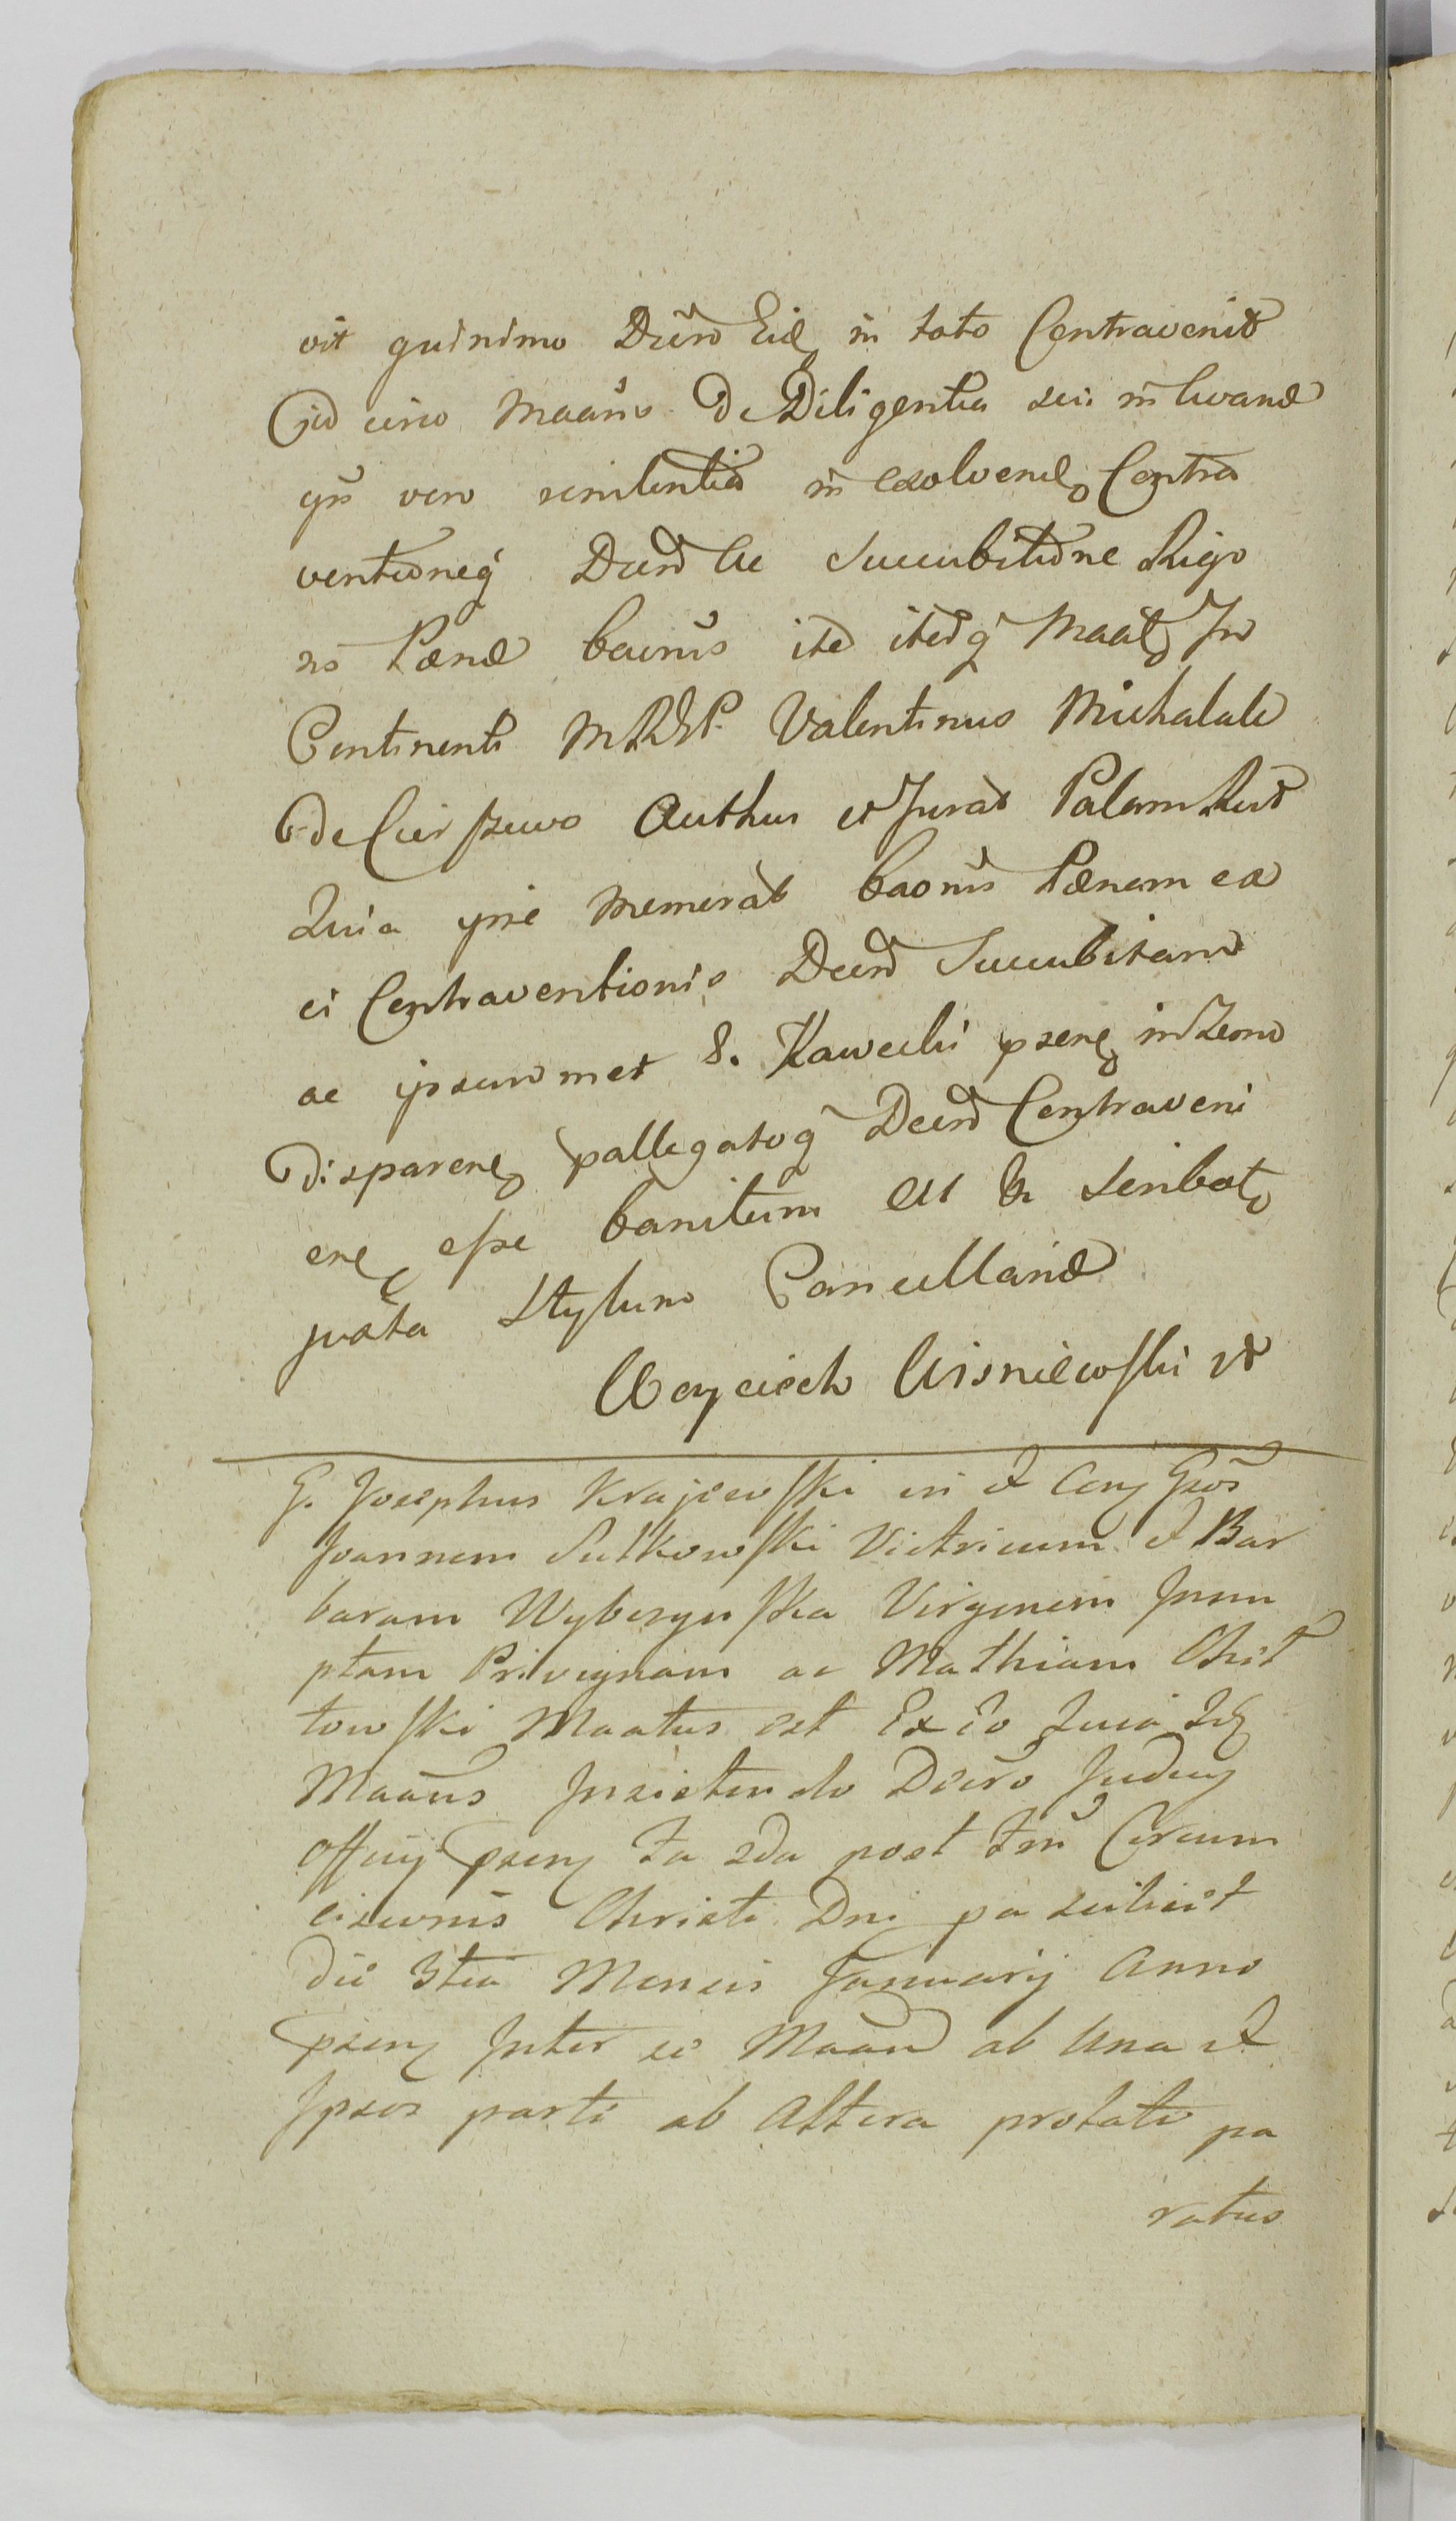 vit quinimo Dūro Eid in toto Contravenit
Id circo Maañs De Diligentia sui in luanō
yñ vero renitentia in exolvend Contra
ventioneq Decrō ac Succubitione Rigo
ris Pænæ baonis ita itaq Maatg In
Continenti MRGP. Valentinus Michalak
De Cierpzewo Authus et Jurat Palam Rect
Quia ipse Memorat baonis Pænam ex
ei Contraventionis Decrō Succubitam
ac ipsummet G. Kawecki psene inItem
Disparene pallegatoq Decrō Contraveni
ene esse banitum Est & Scribatg
juxta Stylum Cancellariæ
Woyciech Wisniewski
G. Josephus Krajewski in et Conj Gsos
Joannem Sutkowski Victricum et Bar
baram Wybczynska Virginem Innu
ptam Privignam ac Mathiam Chit
towski Maatus est Ex Eo Quia Id
Maañs Insistendo Decro Judicy
Officij psenz Fa 2da post Fm̃ Circum
cisionis Christi Dni pa scilicet
Die 3tia Mensis January Anno
psenz Inter se Maañ ab Una et
Ipsos parte ab Altera prolato pa
ratus